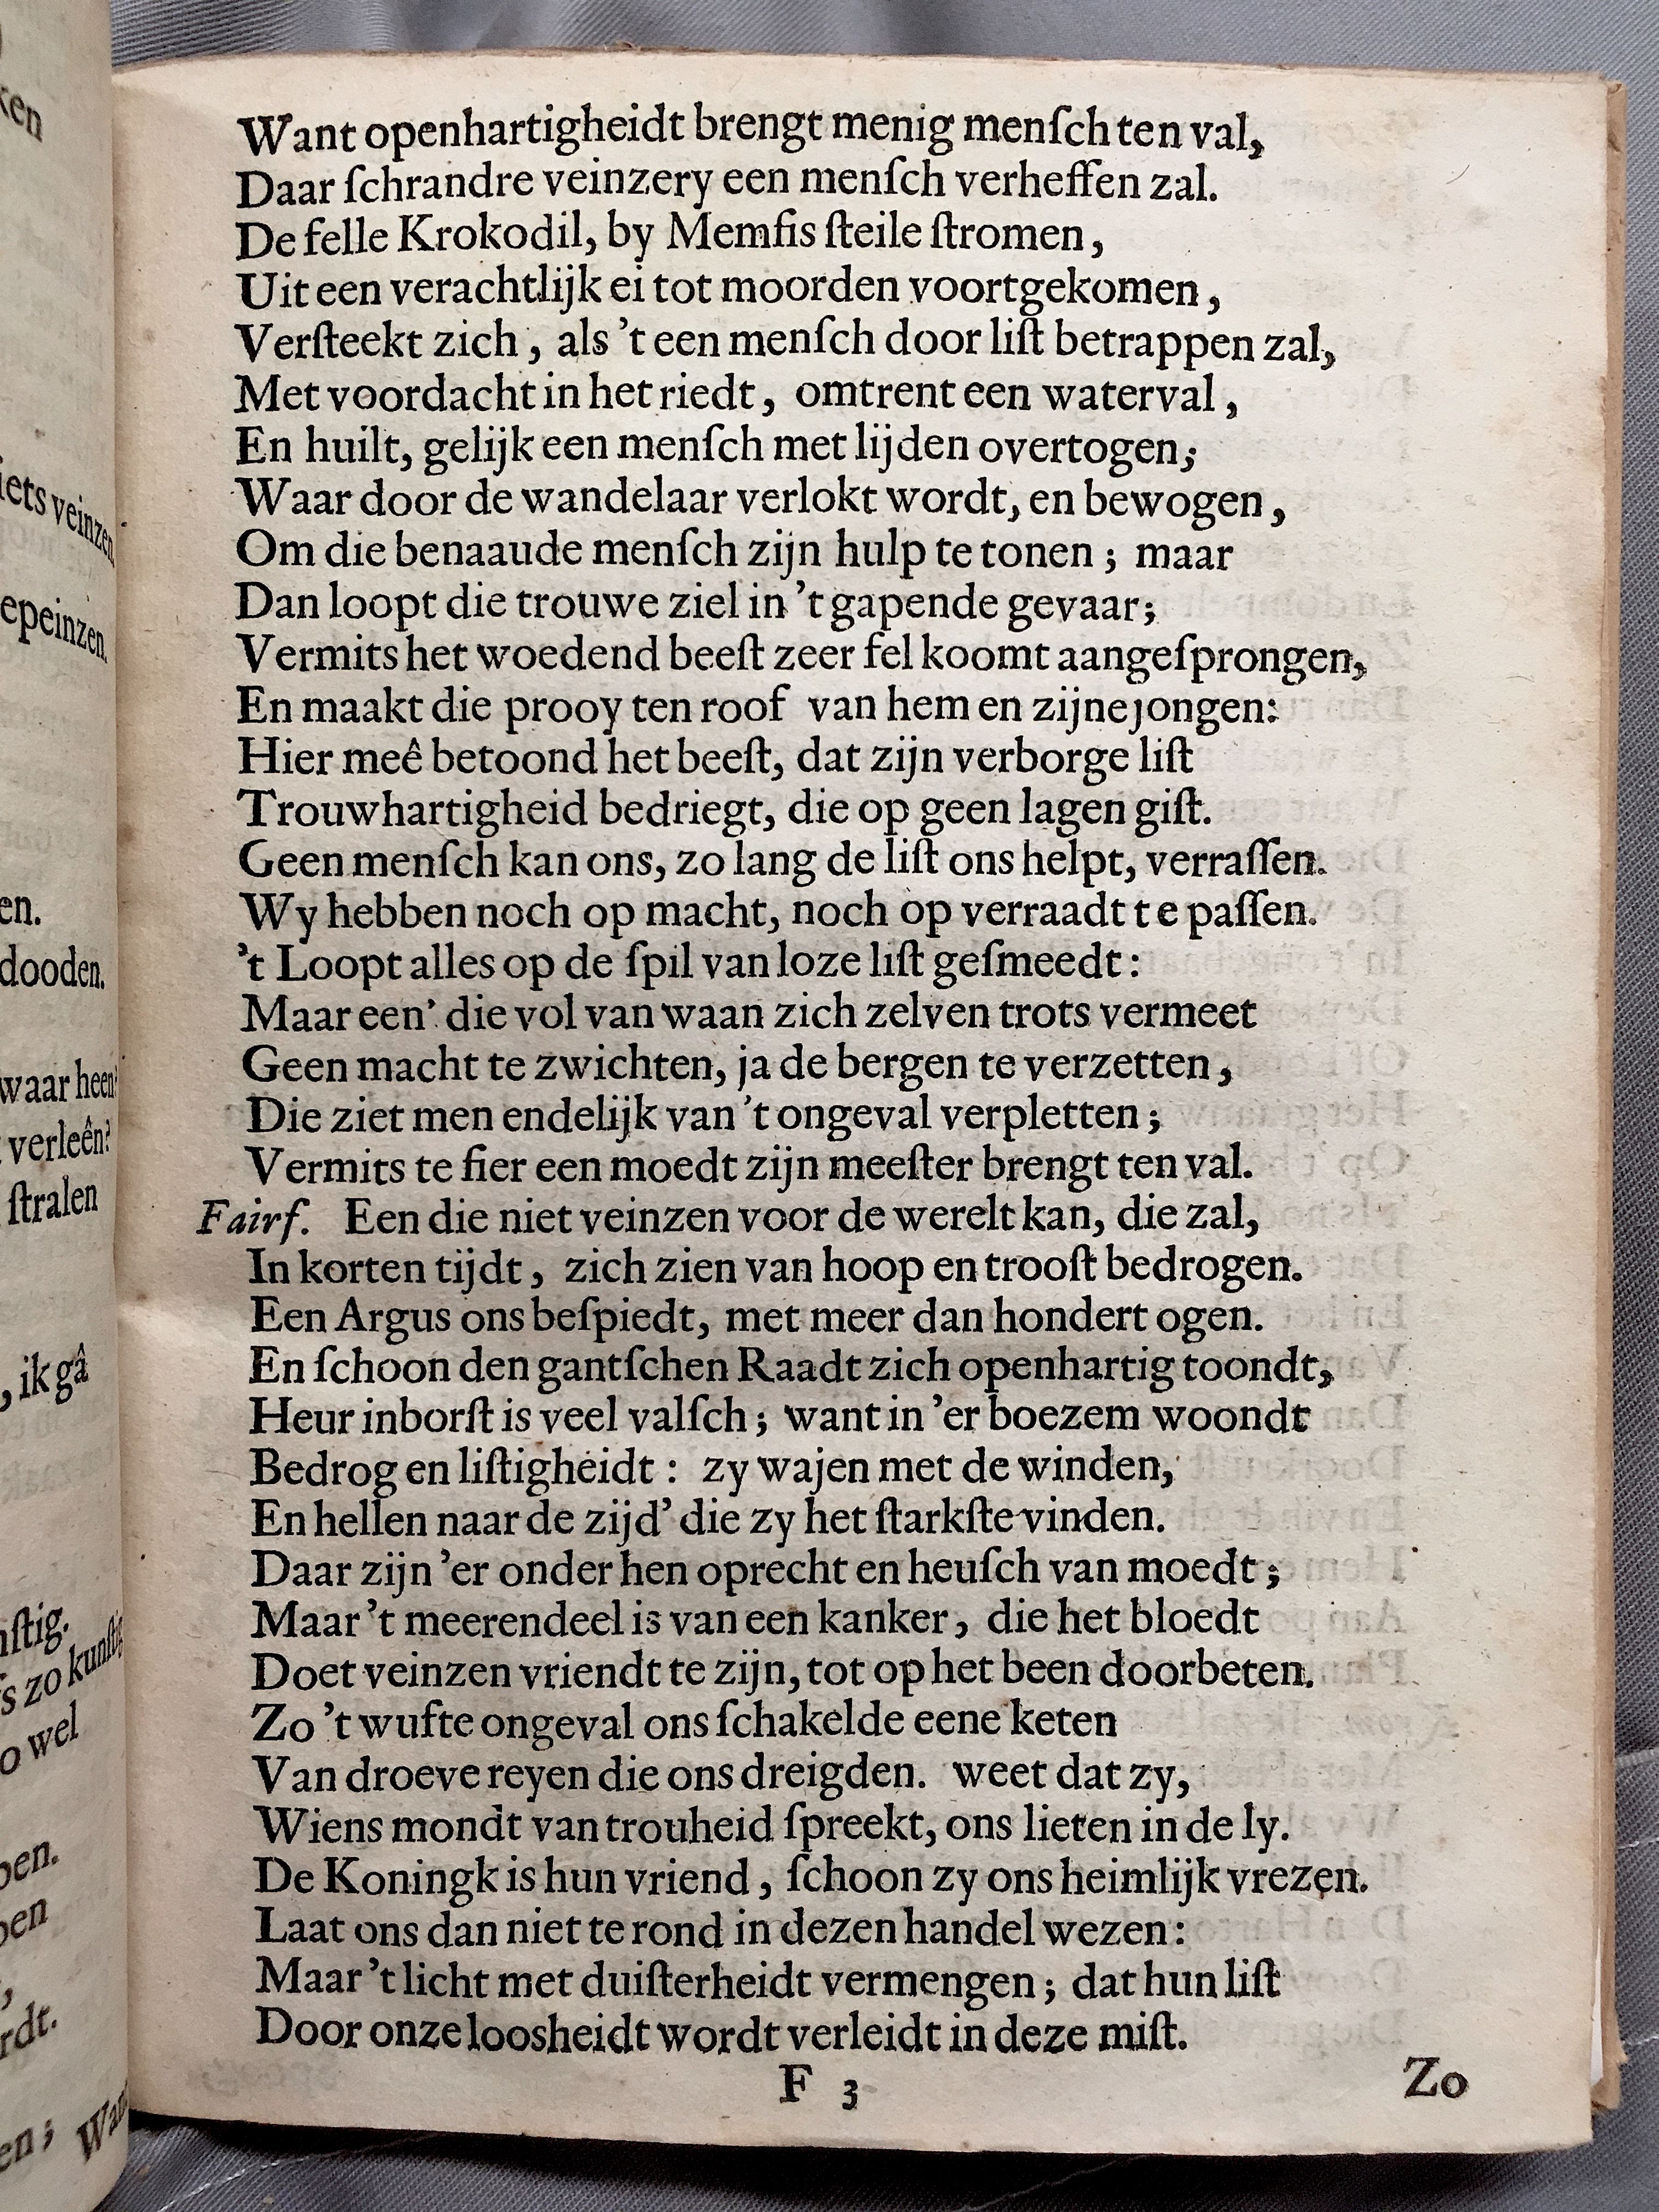 Want openhartigheidt brengt menig menſch ten val,
Daar ſchrandre veinzery een menſch verheffen zal.
De felle Krokodil, by Memfis ſteile ſtromen,
Uit een verachtlijk ei tot moorden voortgekomen,
Verſteekt zich, als 't een menſch door liſt betrappen zal,
Met voordacht in het riedt, omtrent een waterval,
En huilt, gelijk een menſch met lijden overtogen;
Waar door de wandelaar verlokt wordt, en bewogen,
Om die benaaude menſch zijn hulp te tonen; maar
Dan loopt die trouwe ziel in 't gapende gevaar;
Vermits het woedend beeſt zeer fel koomt aangeſprongen,
En maakt die prooy ten roof van hem en zijne jongen:
Hier meê betoond het beeſt, dat zijn verborge liſt
Trouwhartigheid bedriegt, die op geen lagen giſt.
Geen menſch kan ons, zo lang de liſt ons helpt, verraſſen.
Wy hebben noch op macht, noch op verraadt te paſſen.
't Loopt alles op de ſpil van loze liſt geſmeedt:
Maar een' die vol van waan zich zelven trots vermeet
Geen macht te zwichten, ja de bergen te verzetten,
Die ziet men endelijk van 't ongeval verpletten;
Vermits te fier een moedt zijn meeſter brengt ten val.
Fairf. Een die niet veinzen voor de werelt kan, die zal,
In korten tijdt, zich zien van hoop en trooſt bedrogen.
Een Argus ons beſpiedt, met meer dan hondert ogen.
En ſchoon den gantſchen Raadt zich openhartig toondt,
Heur inborſt is veel valſch; want in 'er boezem woondt
Bedrog en liſtigheidt: zy wajen met de winden,
En hellen naar de zijd' die zy het ſtarkſte vinden.
Daar zijn 'er onder hen oprecht en heuſch van moedt;
Maar 't meerendeel is van een kanker, die het bloedt
Doet veinzen vriendt te zijn, tot op het been doorbeten.
Zo 't wufte ongeval ons ſchakelde eene keten
Van droeve reyen die ons dreigden. weet dat zy,
Wiens mondt van trouheid ſpreekt, ons lieten in de ly.
De Koningk is hun vriend, ſchoon zy ons heimlijk vrezen.
Laat ons dan niet te rond in dezen handel wezen:
Maar 't licht met duiſterheidt vermengen; dat hun liſt
Door onze loosheidt wordt verleidt in deze miſt.
F 3 Zo